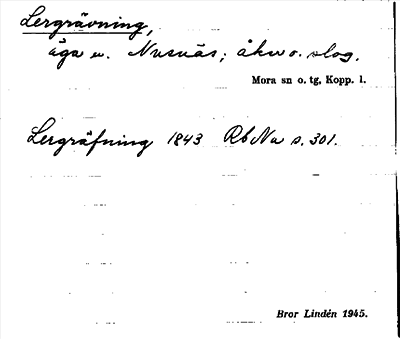 Lergrävning,
äga u. Nusnäs; åker o. slog.
Mora sn o. tg, Kopp. l.
Lergräfning 1843 RbNu s. 301.
Bror Lindén 1945.